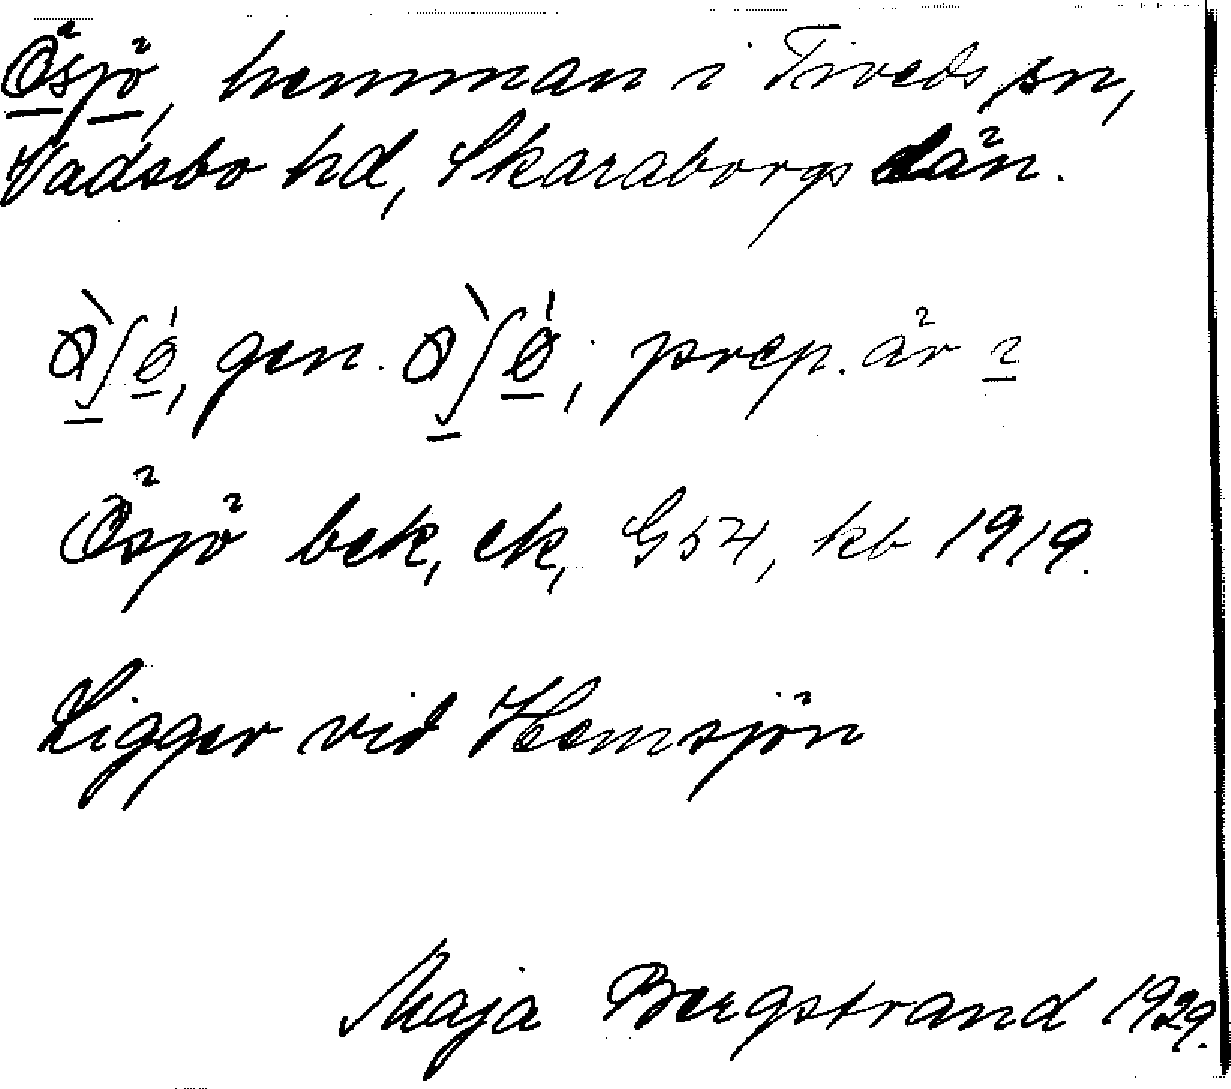 Ösjö, hemman i Tiveds sn,
Vadsbo hd, Skaraborgs län.
gen. prep. är i
Ösjö bek, ek, G 54, kb 1919.
Ligger vid Hemsjön
Maja Bergstrand 1929.